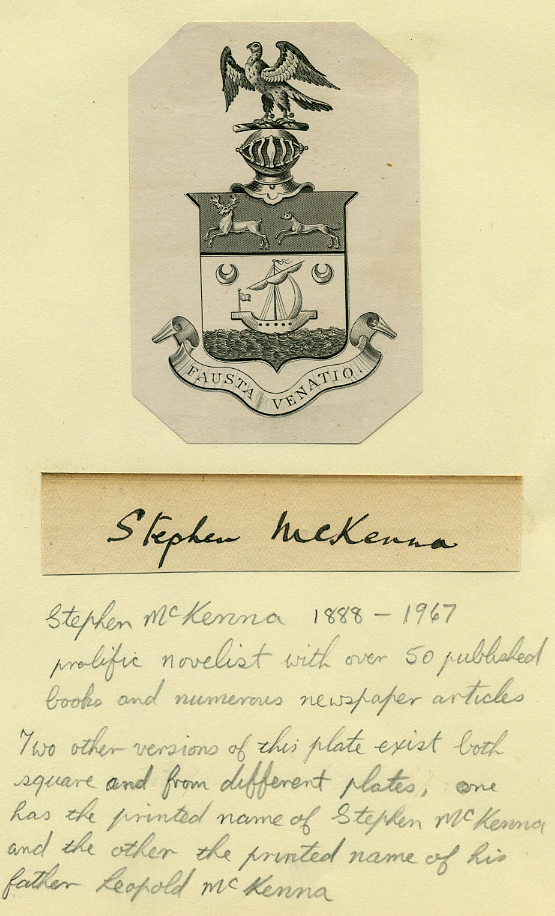 FAUSTA VENATIO
Stephen McKenna
Stephen McKenna 1888 - 1967
prolific novelist with over 50 published
books and numerous newspaper articles
Two other versions of this plate exist both
square and from different plates, one
has the printed name of Stephen McKenna
and the other the printed name of his
father Leopold McKenna